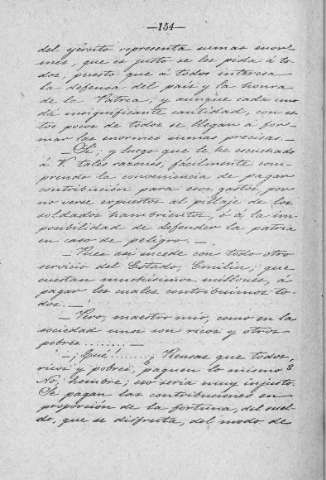 —154—
del ejército representa sumas enor-
mes, que es justo se les pida á to-
dos, puesto que á todos interesa
la defensa del país y la honra
de la Patria; y aunque cada uno
dá insignificante cantidad, con es-
tos pocos de todos se llegan á for-
mar las enormes sumas precisas.
—Sí, y luego que le he escuchado
á V. tales razones, fácilmente com-
prendo la conveniencia de pagar
contribución para esos gastos, por
no verse expuestos al pillaje de los
soldados hambrientos, ó á la im-
posibilidad de defender la patria
en caso de peligro.—
—Pues así sucede con todo otro
servicio del Estado, Emilio, que
cuestan muchísimos millones, á
pagar los cuales contribuimos to-
dos.—
—Pero, maestro mío, como en la
sociedad unos son ricos y otros
pobres........—
—¡Qué!......¿Piensas que todos,
ricos y pobres, paguen lo mismo?
No, hombre; eso sería muy injusto.
Se pagan las contribuciones en
proporción de la fortuna, del suel-
do, que se disfruta, del modo de